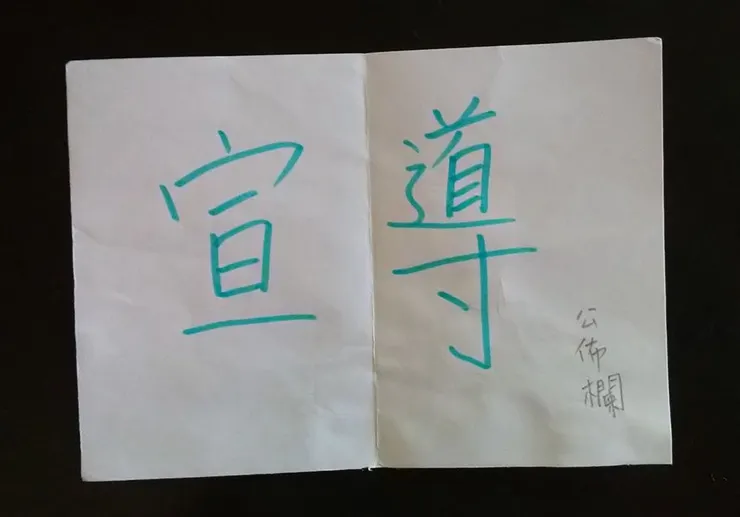 宣導
公佈欄